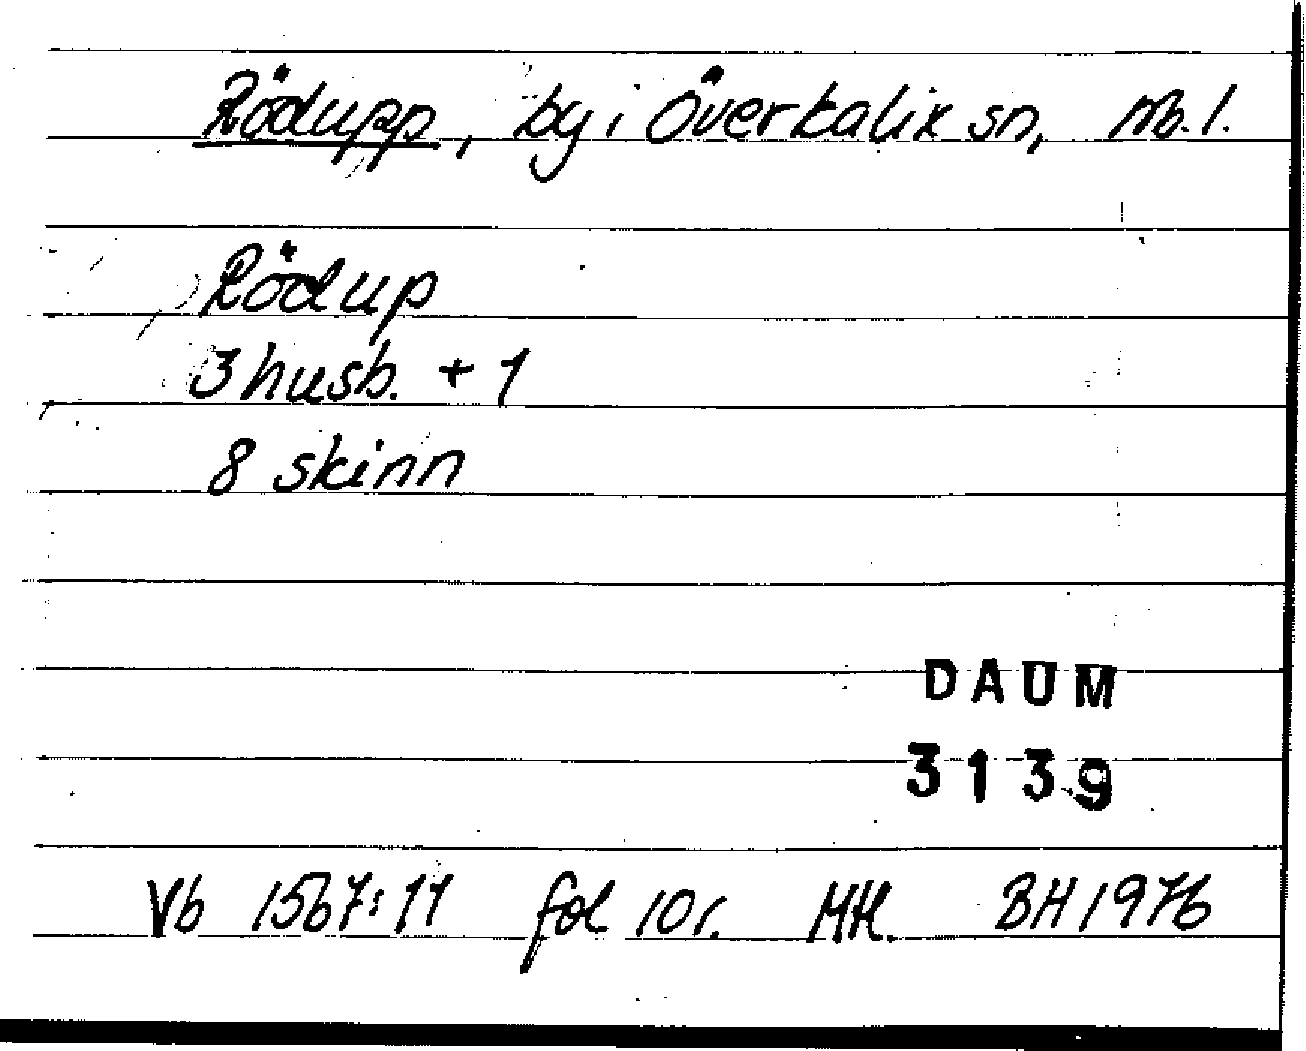 Rödupp, by i Överkalix sn, Nb. l.
Rödup
3 husb. + 1
8 skinn
DAUM
3139
Vb 1567:11 fol 10r. HH. BH 1976